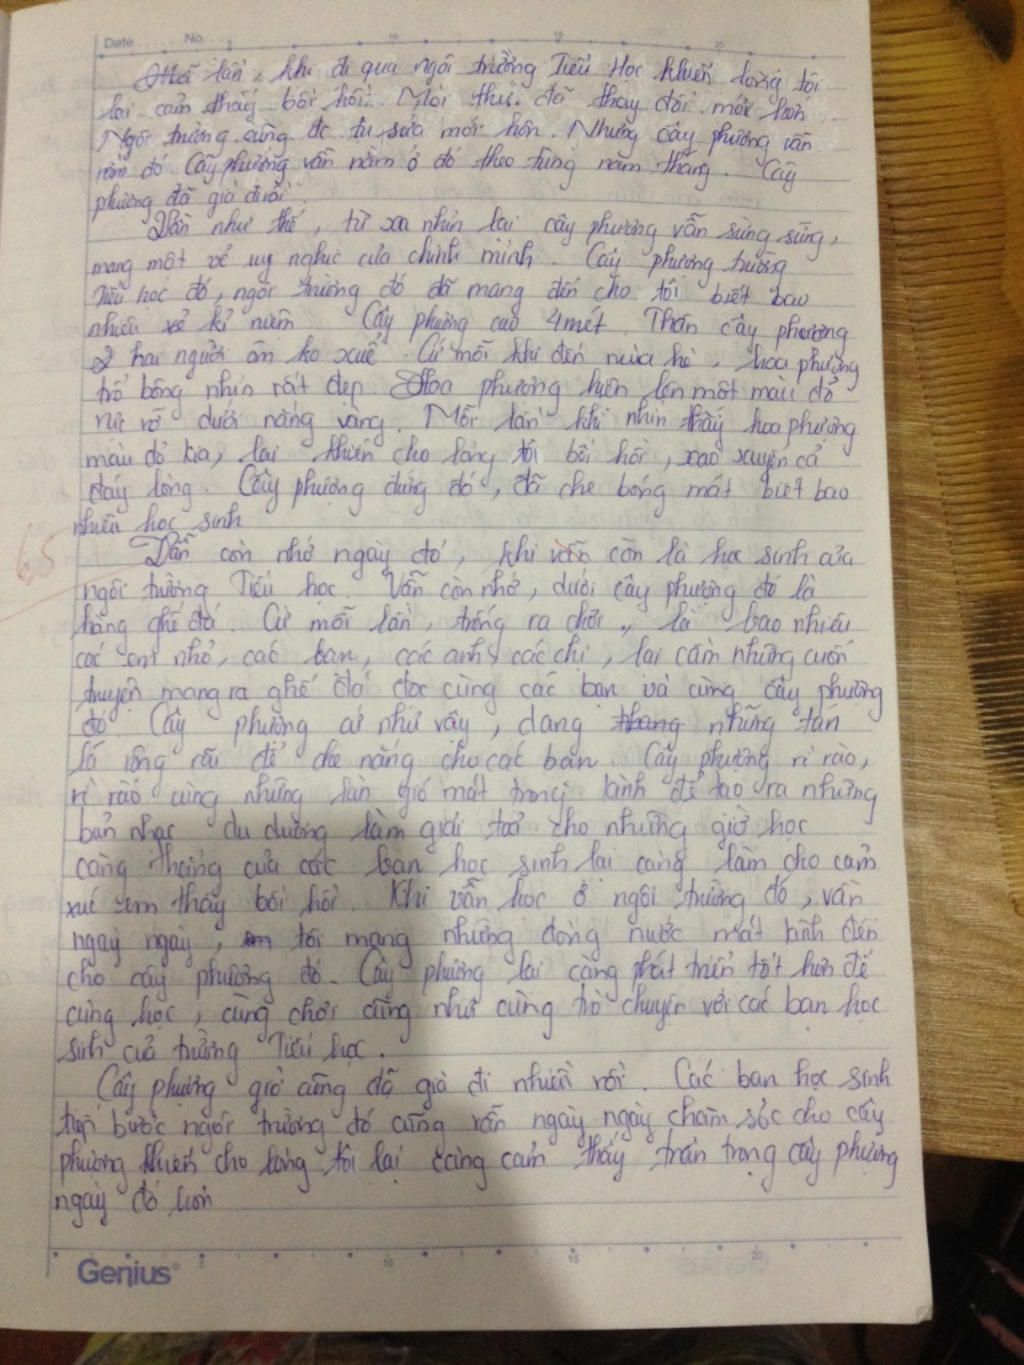 Date ...... No. 5 10 15 20
Mỗi lần, khi đi qua ngôi trường Tiểu Học khiến lòng tôi
lại cảm thấy bồi hồi. Mọi thứ đã thay đổi mới hơn.
Ngôi trường cũng đc tu sửa mới hơn. Nhưng cây phượng vẫn
nằm đó. Cây phượng vẫn nằm ở đó theo từng năm tháng. Cây
phượng đã già đi rồi.
Vẫn như thế, từ xa nhìn lại cây phượng vẫn sừng sững,
mang một vẻ uy nghiêm của chính mình. Cây phượng trường
Tiểu học đó, ngôi trường đó đã mang đến cho tôi biết bao
nhiêu kỉ niệm. Cây phượng cao 4 mét. Thân cây phượng
2 hai người ôm ko xuể. Cứ mỗi khi đến mùa hè, hoa phượng
trổ bông nhìn rất đẹp. Hoa phượng hiện lên một màu đỏ
rực rỡ dưới nắng vàng. Mỗi lần khi nhìn thấy hoa phượng
màu đỏ kia, lại khiến cho lòng tôi bồi hồi, xao xuyến cả
đáy lòng. Cây phượng đứng đó, đã che bóng mát biết bao
nhiêu học sinh
6,5
Vẫn còn nhớ ngày đó, khi vẫn còn là học sinh của
ngôi trường Tiểu học. Vẫn còn nhớ, dưới cây phượng đó là
hàng ghế đá. Cứ mỗi lần, trống ra chơi, là bao nhiêu
các em nhỏ, các bạn, các anh, các chị, lại cầm những cuốn
truyện mang ra ghế đá đọc cùng các bạn và cùng cây phượng
đó. Cây phượng cứ như vậy, dang những tán
lá rộng rãi để che nắng cho các bạn. Cây phượng rì rào,
rì rào cùng những làn gió mát trong lành để tạo ra những
bản nhạc du dương làm giải toả cho những giờ học
căng thẳng của các bạn học sinh lại càng làm cho cảm
xúc em thấy bồi hồi. Khi vẫn học ở ngôi trường đó, vẫn
ngày ngày, tôi mang những dòng nước mát lành đến
cho cây phượng đó. Cây phượng lại càng phát triển tốt hơn để
cùng học, cùng chơi cũng như cùng trò chuyện với các bạn học
sinh của trường Tiểu học.
Cây phượng giờ cũng đã già đi nhiều rồi. Các bạn học sinh
tiếp bước ngôi trường đó cũng vẫn ngày ngày chăm sóc cho cây
phượng khiến cho lòng tôi lại càng cảm thấy trân trọng cây phượng
ngày đó hơn
Genius 5 10 15 20